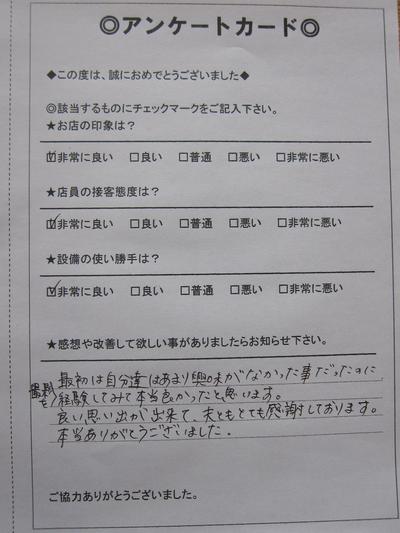 ◎アンケートカード◎
◆この度は、誠におめでとうございました◆
◎該当するものにチェックマークをご記入下さい。
★お店の印象は？
☑非常に良い □良い □普通 □悪い □非常に悪い
★店員の接客態度は？
☑非常に良い □良い □普通 □悪い □非常に悪い
★設備の使い勝手は？
☑非常に良い □良い □普通 □悪い □非常に悪い
★感想や改善して欲しい事がありましたらお知らせ下さい。
最初は自分達はあまり興味がなかった事だったのに
経験してみて本当良かったと思います。
良い思い出が出来て、夫ともとても感謝しております。
本当ありがとうございました。
ご協力ありがとうございました。